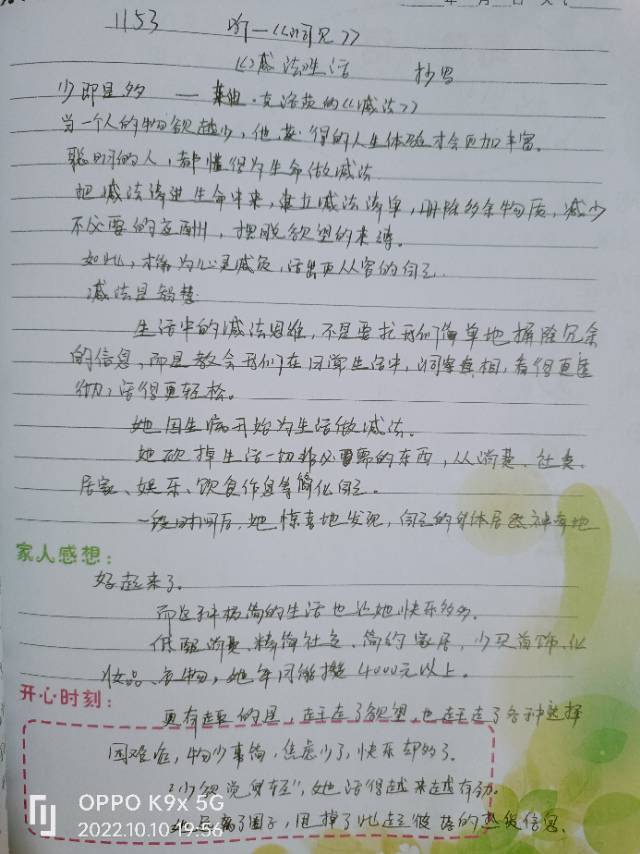 1153 听一《洞见》
《》减法生活 抄写
少即是多 — 莱迪·克洛茨的《减法》
当一个人的物欲越少，他获得的人生体验才会更加丰富。
聪明的人，都懂得为生命做减法
把减法请进生命中来，建立减法清单，删除多余物质，减少
不必要的应酬，摆脱欲望的束缚。
如此，才为心灵减负，活出更从容的自己
减法是智慧
生活中的减法思维，不是要我们简单地摒除冗余
的信息，而是教会我们在日常生活中，洞察真相，看得更透
彻，活得更轻松。
她因生病开始为生活做减法。
她砍掉生活一切非必要需的东西，从消费、社交、
居家、娱乐、饮食作息等简化自己。
一段时间后，她惊喜地发现，自己的身体居然神奇地
家人感想：
好起来了。
而这种极简的生活也让她快乐多多。
低配消费、精简社交、简约家居，少买首饰、化
妆品、衣物，她每月能攒4000元以上。
开心时刻：
更有趣的是，赶走了欲望，也赶走了各种选择
困难症，物少事简，焦虑少了，快乐却多了。
"少欲觉身轻"，她活得越来越有劲。
她远离了圈子，甩掉了此起彼落的热级信息。
OPPO K9x 5G
2022.10.10 19:56